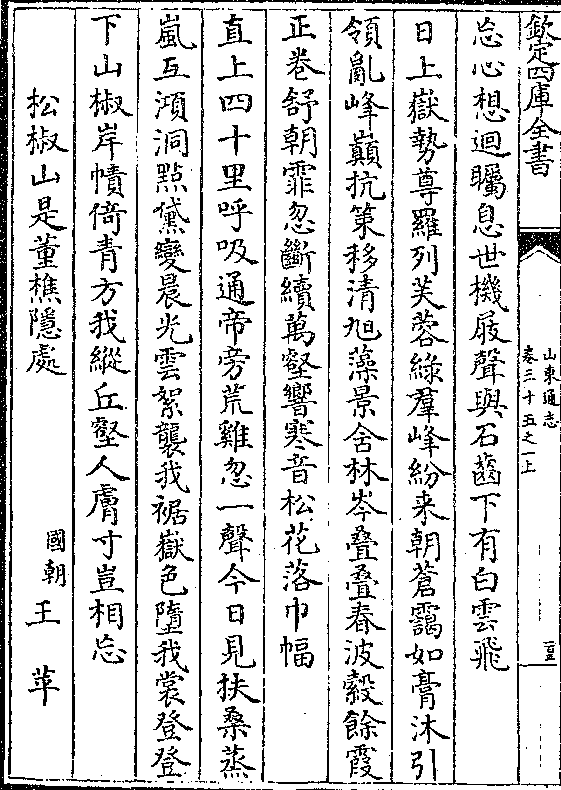 欽定四庫全書
山東通志
卷三十五之一上
忘心想迴矚息世機屐聲與石齒下有白雲飛
日上嶽勢尊羅列芙蓉綠羣峰紛来朝蒼靄如膏沐引
領亂峰巔抗策移清旭藻景舍林岑疊疊春波縠餘霞
正卷舒朝霏忽斷續萬壑響寒音松花落巾幅
直上四十里呼吸通帝旁荒雞忽一聲今日見扶桑蒸
嵐互澒洞點黛變晨光雲絮襲我裾嶽色墮我裳登登
下山椒岸幘倚青方我縱丘壑人膚寸豈相忘
松椒山是董樵隱處
國朝王苹